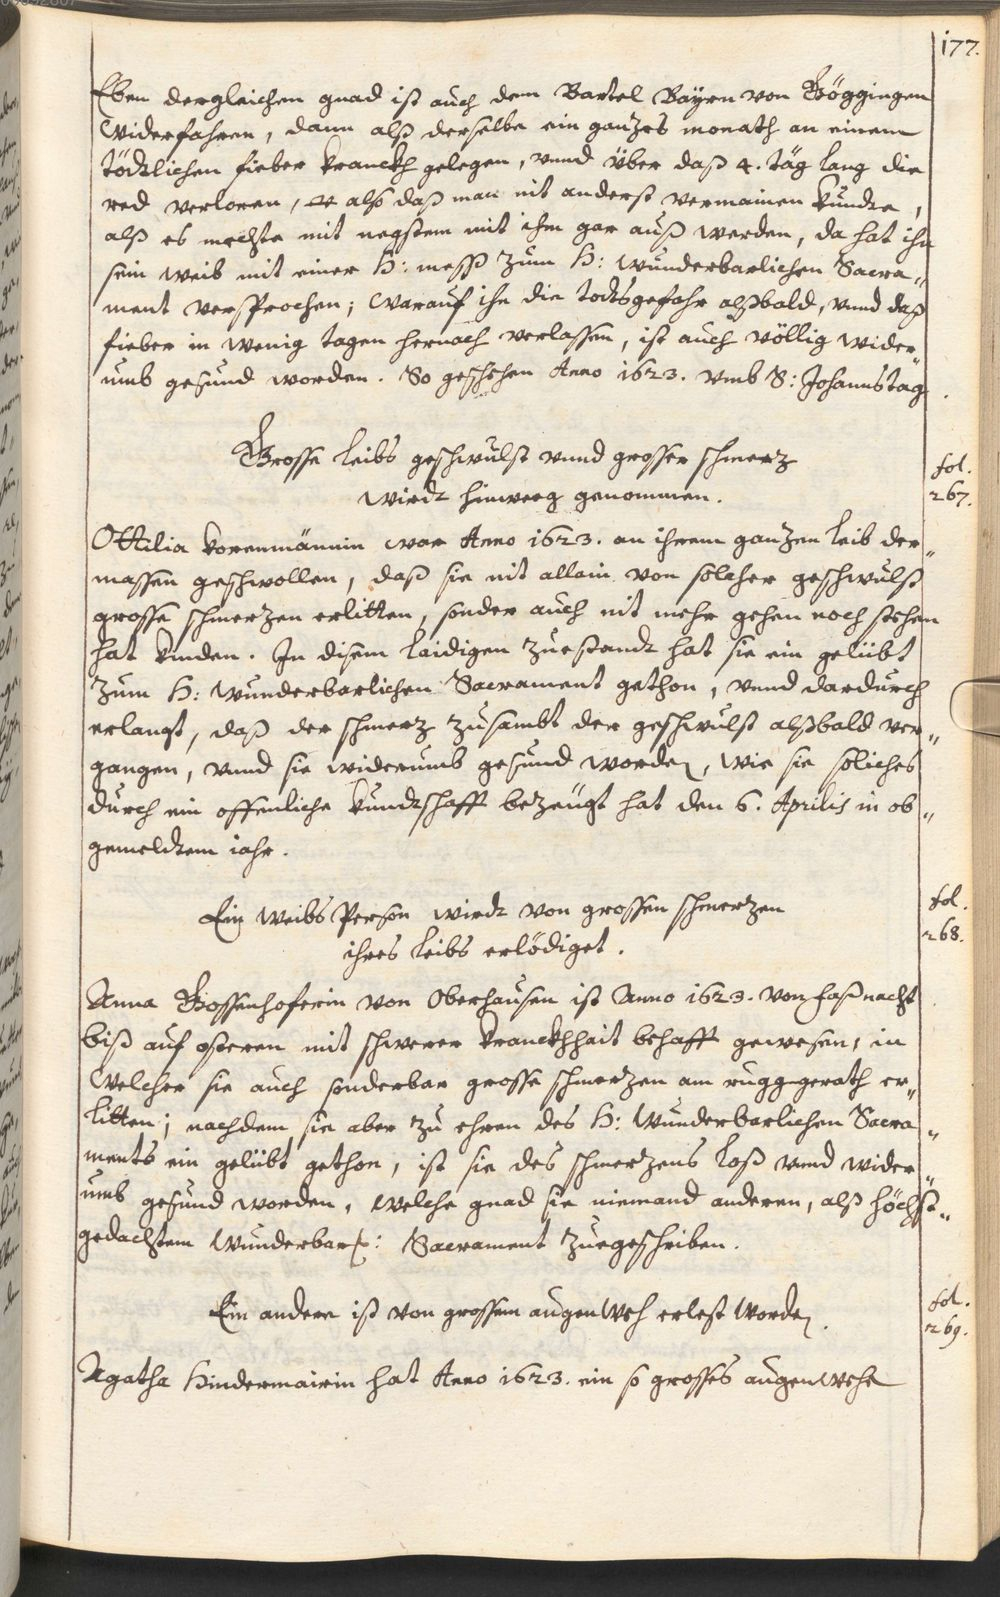 177.
Eben dergleichen gnad ist auch dem Bartel Bayrn von Göggingen
widerfahren, dann alß derselbe ein ganzes monath an einem
tödtlichen fieber kranckh gelegen, vnnd über daß 4. täg lang die
red verloren, also daß man nit anderst vermainen kundte,
alß es mechte mit negstem mit ihm gar auß werden, da hat ihn
sein weib mit einer H: mess zum H: wunderbarlichen Sacra„
ment versprochen; warauf ihn die todtsgefahr alßbald, vnnd daß
fieber in wenig tagen hernach verlassen, ist auch völlig wider„
umb gesund worden. So geschehen Anno 1623. vmb S: Johannstag.
Grosse leibs geschwulst vnnd grosser schmerz
wirdt hinweeg genommen.
fol.
267.
Ottilia korenmännin war Anno 1623. an ihrem ganzen leib der„
massen geschwollen, daß sie nit allein von solcher geschwulst
grosse schmerzen erlitten, sonder auch nit mehr gehen noch stehen
hat kinden. In disem laidigen zuestandt hat sie ein gelübt
zum H: wunderbarlichen Sacrament gethon, vnnd dardurch
erlangt, daß der schmerz zusambt der geschwulst alßbald ver„
gangen, vnnd sie widerumb gesund worden, wie sie soliches
durch ein offenliche kundtschafft bezeügt hat den 6. Aprilis in ob„
gemeldtem iahr.
Ein weibs Person wirdt von grossen schmertzen
ihres leibs erlödiget.
fol.
268.
Anna Gossenhoferin von Oberhausen ist Anno 1623. von faßnacht
biß auf osteren mit schwerer kranckhhait behafft gewesen, in
welcher sie auch sonderbar grosse schmertzen am rugggerath er„
litten; nachdem sie aber zu ehren des H: Wunderbarlichen Sacra„
ments ein gelübt gethon, ist sie des schmertzens loß vnnd wider„
umb gesund worden, welche gnad sie niemand anderen, alß höchst„
gedachtem Wunderbarl: Sacrament zuegeschriben.
Ein andere ist von grossem augenweh erlest worden.
fol.
269.
Agatha Hindermairin hat Anno 1623. ein so grosses augenwehe